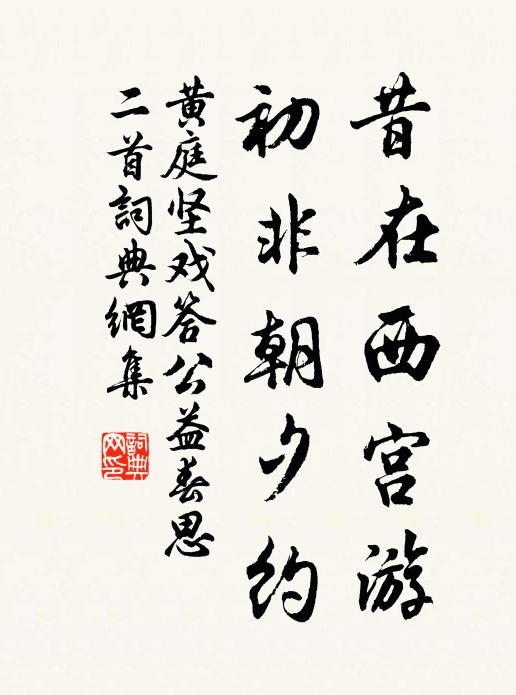 昔在西宫游
初非朝夕约
黄庭坚戏答公益春思
二首詞典網集
詞典網印